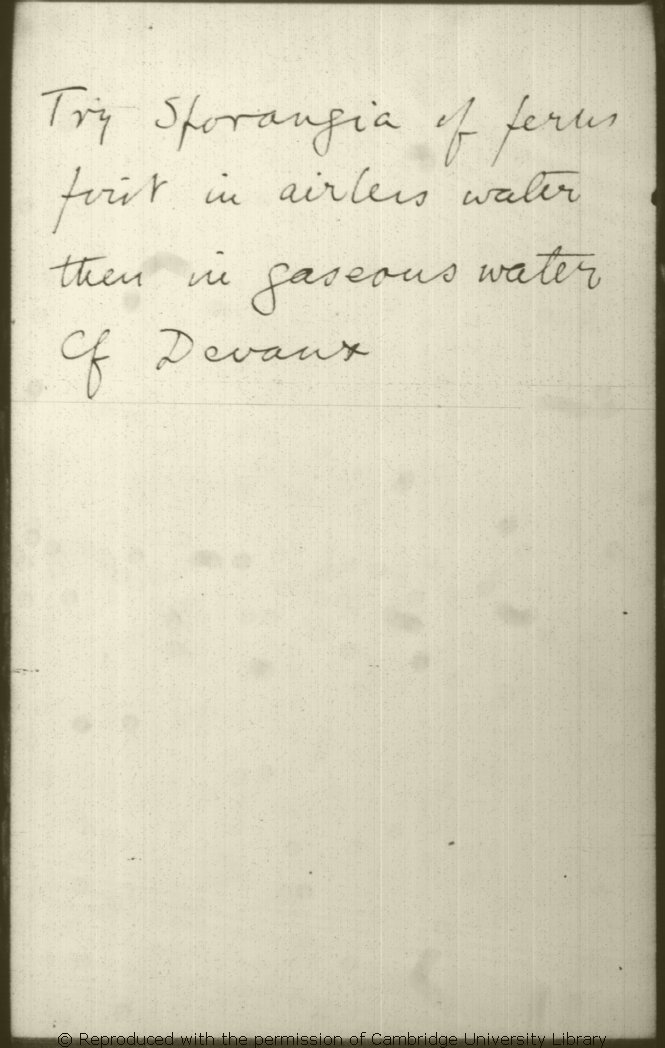 Try Sporangia of ferns
first in airless water
then in gaseous water
Cf Devaux
© Reproduced with the permission of Cambridge University Library